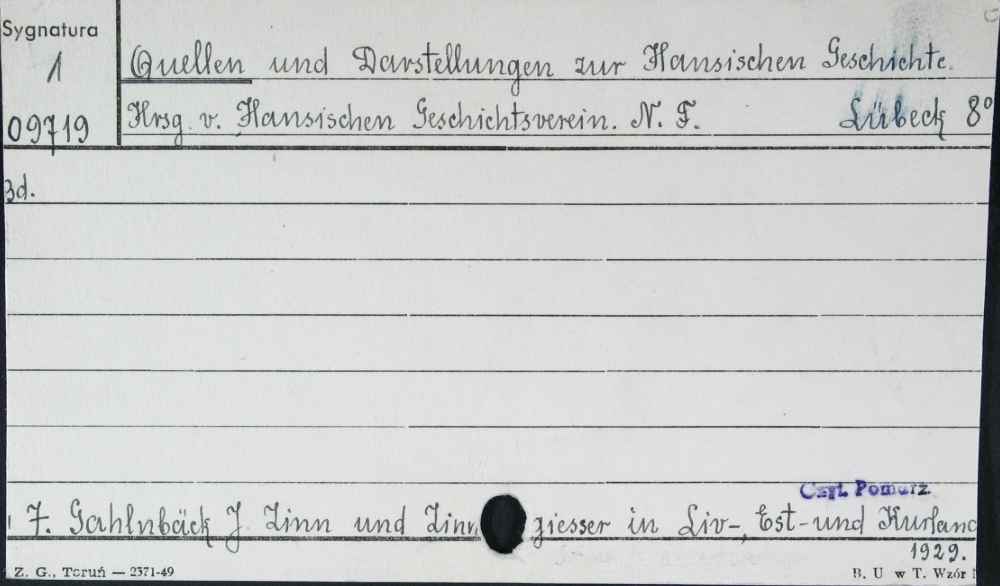 Sygnatura
1
09719
Quellen und Darstellungen zur Hansischen Geschichte.
Hrsg. v. Hansischen Geschichtsverein. N. F. Lübeck 8°
Bd.
Czyt. Pomorz.
7. Gahlnbäck J. Zinn und Zinn giesser in Liv-, Est- und Kurland
1929.
Z. G., Toruń — 2371-49
B. U w T. Wzór